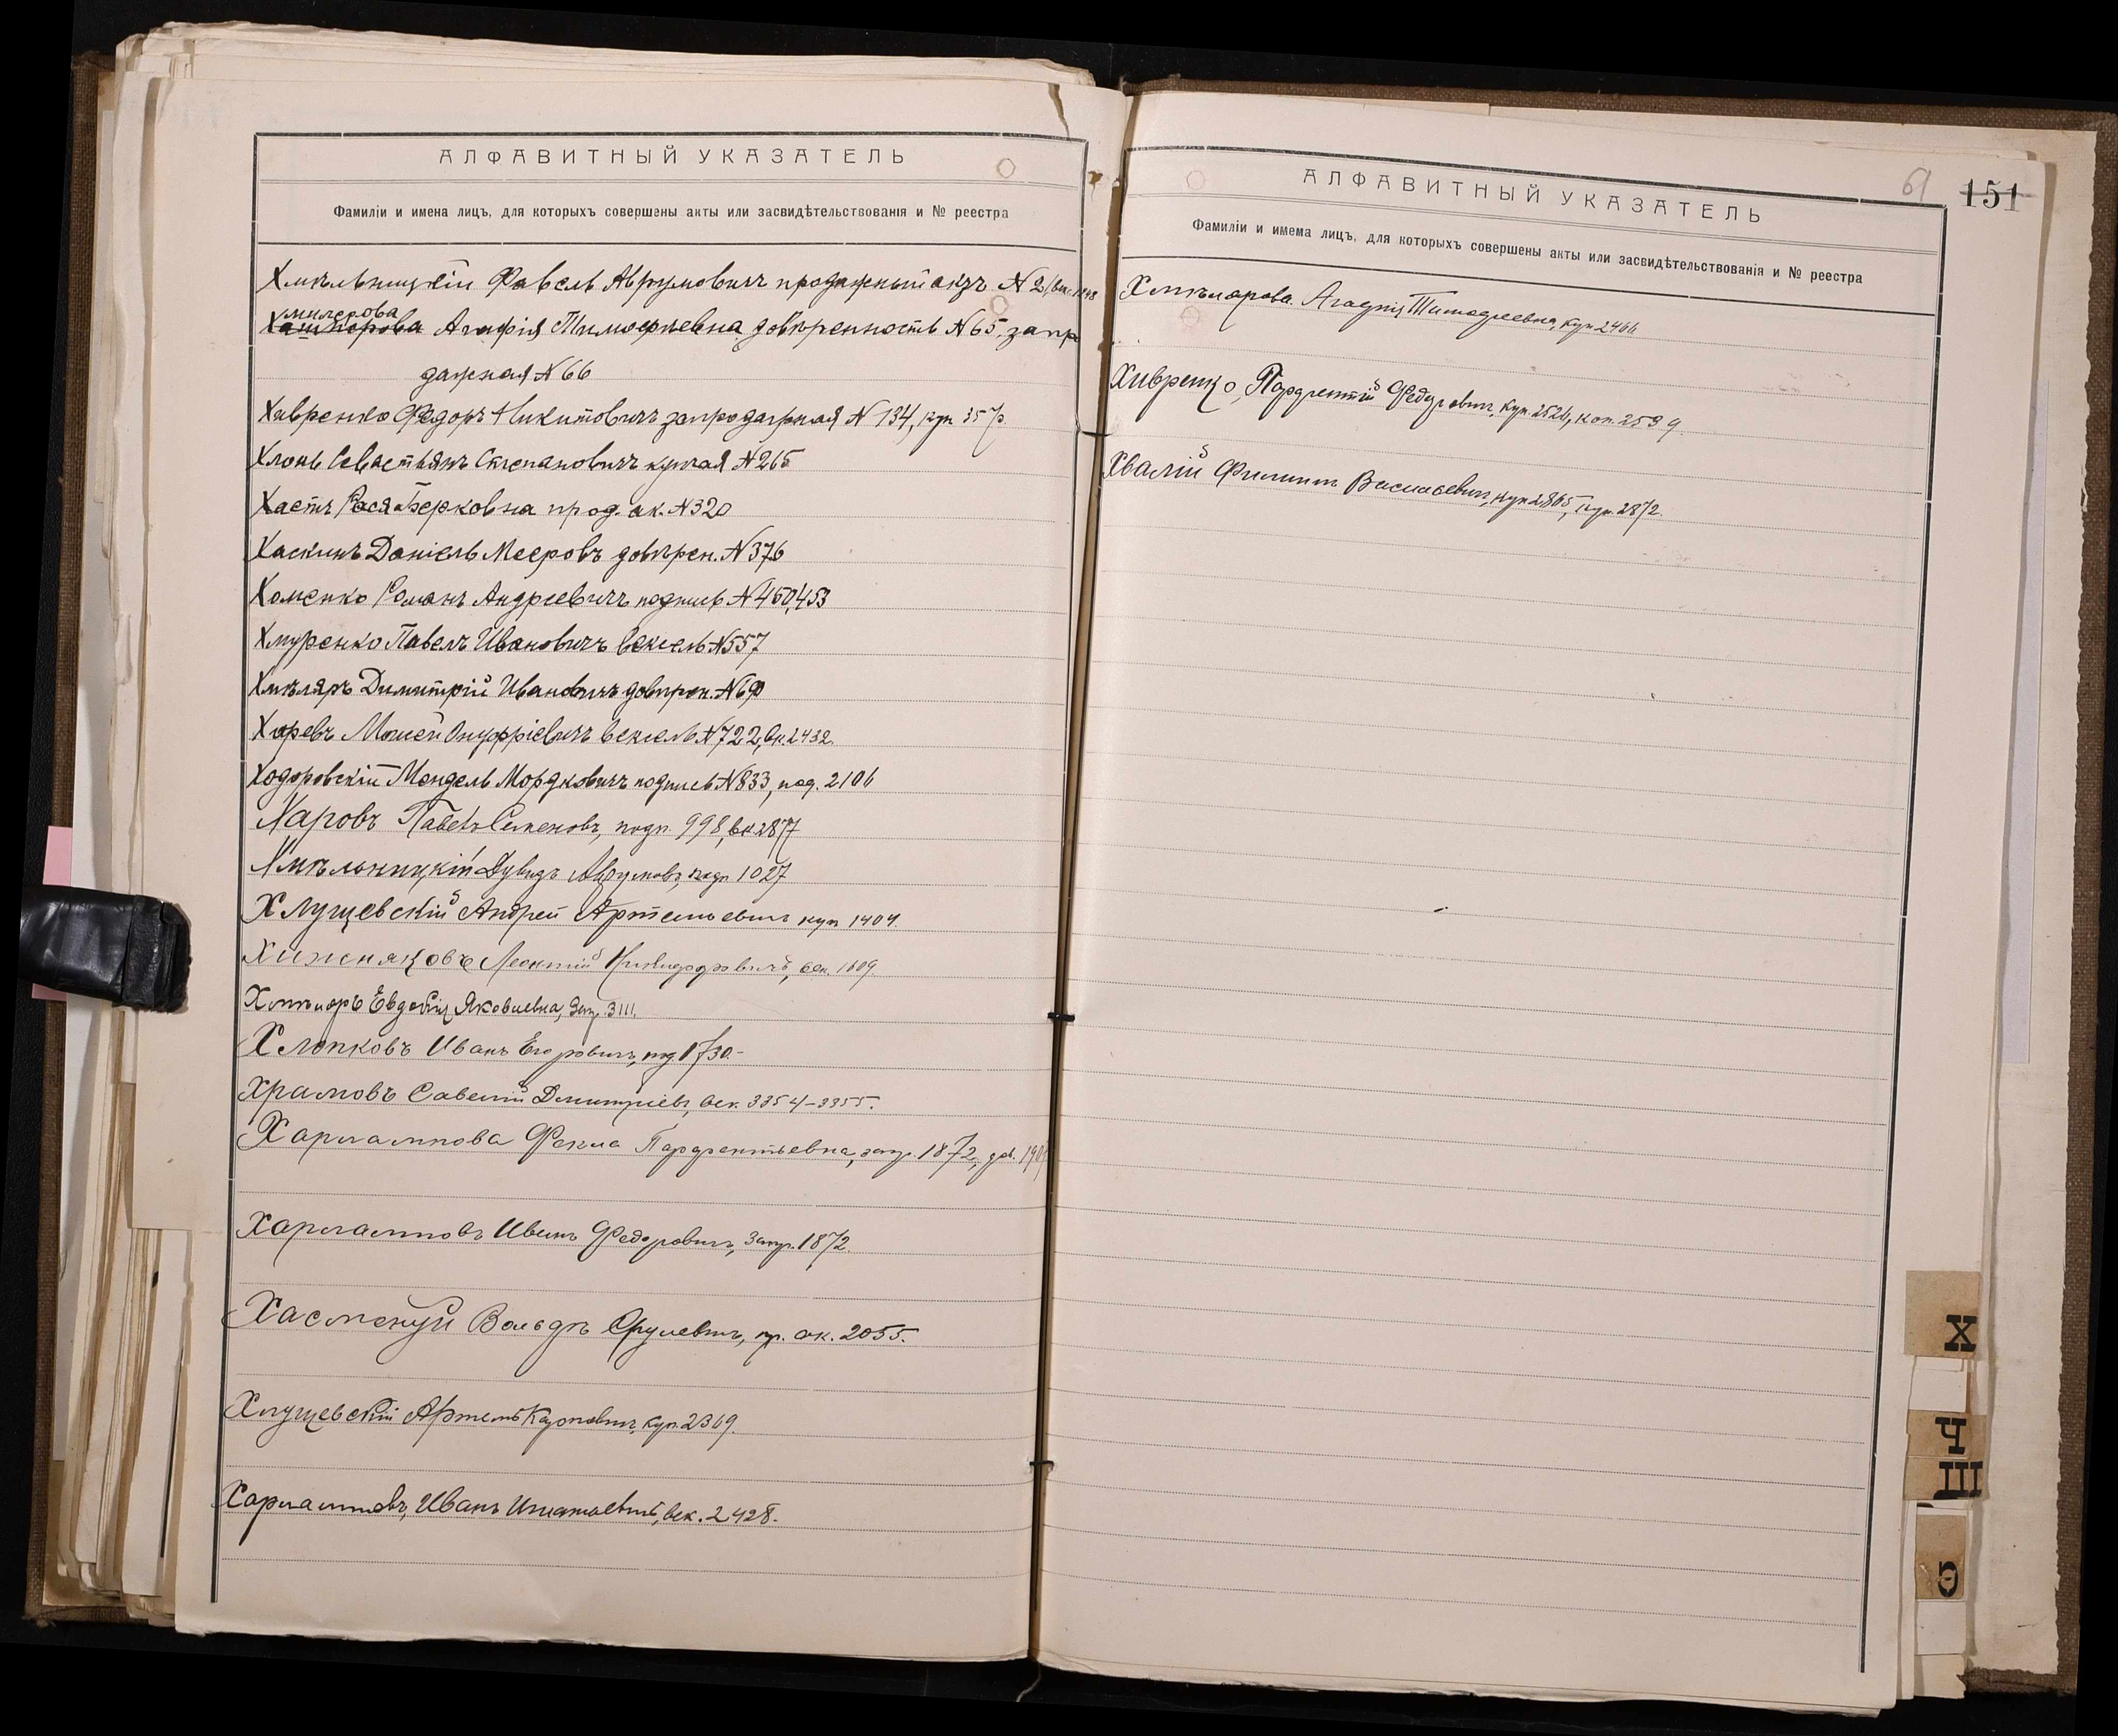 АЛФАВИТНЫЙ УКАЗАТЕЛЬ
Фамиліи и имена лицъ, для которыхъ совершены акты или засвидѣтельствованія и № реестра
Хмѣльницкій Фавель Аврумовичъ продажный актъ №2,
милерова
Агафія Тимофеевна довѣренность №65, запр
дажная №66
Хивренко Федоръ Никитовичъ запродажная №134, куп. 357
Хлонь Севастьянъ Степановичъ купчая №265
Хаетъ Рася Берковна прод. ак. №320
Хаскинъ Даніель Мееровъ довѣрен. №376
Хоменко Романъ Андреевичъ подпись №450,453
Хмуренко Павелъ Ивановичъ вексель №557
Хмѣляръ Димитрій Ивановичъ довѣрен. №690
Харевъ Мойсей Онуфріевичъ вексель №722, вк. 2432.
Ходоровскій Мендель Мордковичъ подпись №833, под. 2106
Харовъ Павелъ Семеновъ, подп. 998, вк 2877
Хмѣльницкій Дувидъ Аврумовъ, подп 1027
Хлущевскій Андрей Артемьевичъ куп 1404.
Хижняковъ Леонтій Никифоровичъ, век. 1609
Хмѣляръ Евдокія Яковлевна, Зап. 3111.
Хлопковъ Иванъ Егоровичъ, под. 1730.-
Храмовъ Савелій Дмитріевъ, век. 3354-3355.
Харлампова Фекла Парфентьевна, запр. 1872, дов.
Харламповъ Иванъ Федоровичъ, Запр. 1872.
Хасменуй Вольдъ Срулевичъ, пр. ак. 2055.
Хлущевскій Артемъ Карповичъ, куп. 2369.
Харламповъ, Иванъ Игнатьевичъ, век. 2428.
61
151
АЛФАВИТНЫЙ УКАЗАТЕЛЬ
Фамиліи и имема лицъ, для которыхъ совершены акты или засвидѣтельствованія и № реестра
Хмѣлярова Агафія Тимофеевна, куп 2466
Хивренко, Парфентій Федоровичъ, куп. 2526, коп. 2539.
Хвалій Филиппъ Васильевичъ, куп 2865, куп. 2872.
Х
Ч
Ш